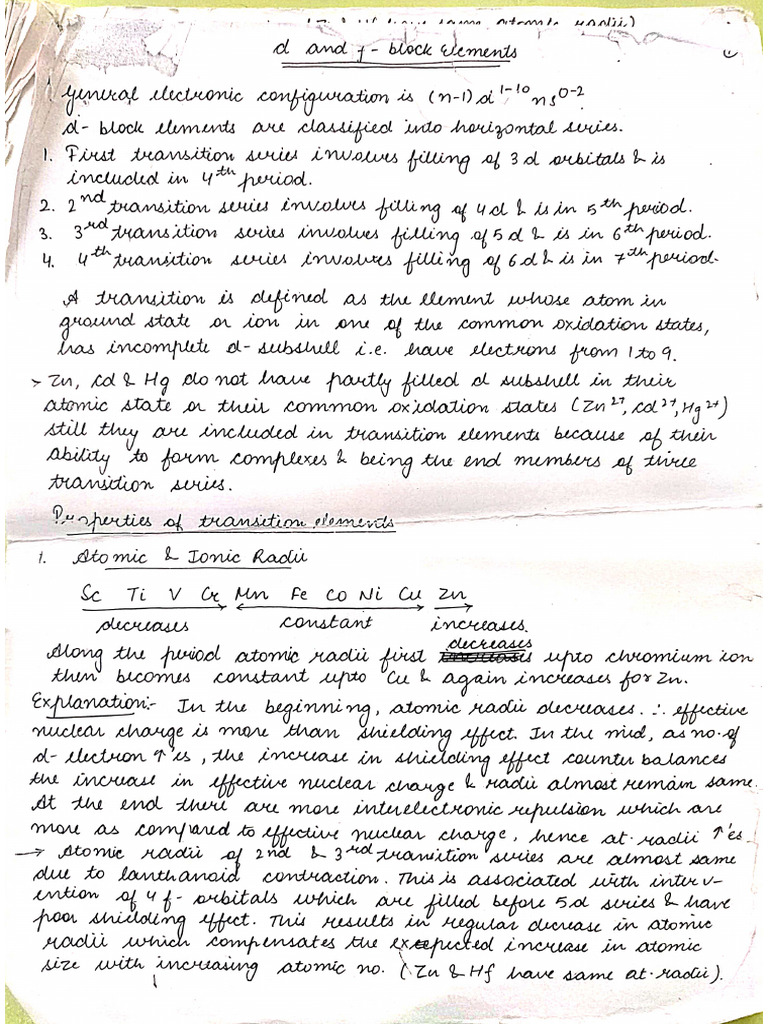 (Zr & Hf have same atomic radii)
d and f - block elements
General electronic configuration is (n-1) d¹⁻¹⁰ ns⁰⁻²
d- block elements are classified into horizontal series.
1. First transition series involves filling of 3d orbitals & is
included in 4th period.
2. 2nd transition series involves filling of 4d & is in 5th period.
3. 3rd transition series involves filling of 5d & is in 6th period.
4. 4th transition series involves filling of 6d & is in 7th period.
A transition is defined as the element whose atom in
ground state or ion in one of the common oxidation states,
has incomplete d-subshell i.e. have electrons from 1 to 9.
> Zn, Cd & Hg do not have partly filled d subshell in their
atomic state or their common oxidation states (Zn²⁺, Cd²⁺, Hg²⁺)
still they are included in transition elements because of their
ability to form complexes & being the end members of three
transition series.
Properties of transition elements
1. Atomic & Ionic Radii
Sc Ti V Cr Mn Fe Co Ni Cu Zn
decreases constant increases.
decreases
Along the period atomic radii first upto chromium ion
then becomes constant upto Cu & again increases for Zn.
Explanation:- In the beginning, atomic radii decreases. ∴ effective
nuclear charge is more than shielding effect. In the mid, as no. of
d-electron ↑'es, the increase in shielding effect counter balances
the increase in effective nuclear charge & radii almost remain same.
At the end there are more interelectronic repulsion which are
more as compared to effective nuclear charge, hence at. radii ↑'es
→ Atomic radii of 2nd & 3rd transition series are almost same
due to lanthanoid contraction. This is associated with interv-
ention of 4f- orbitals which are filled before 5d series & have
poor shielding effect. This results in regular decrease in atomic
radii which compensates the expected increase in atomic
size with increasing atomic no. (Zr & Hf have same at. radii).